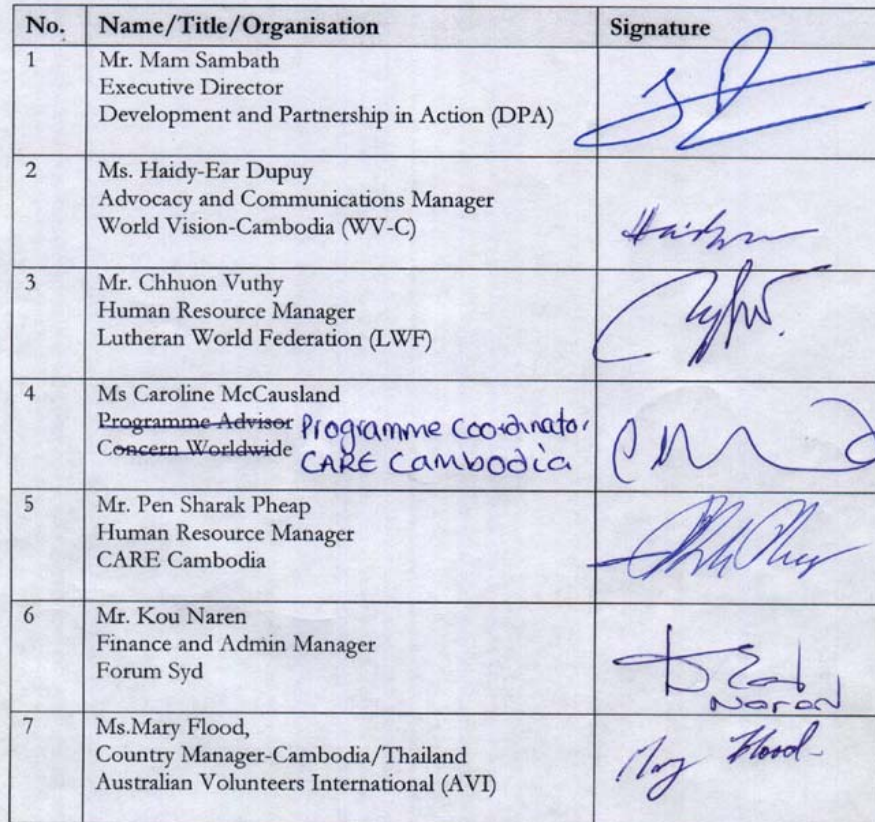 No. Name/Title/Organisation Signature
1 Mr. Mam Sambath
Executive Director
Development and Partnership in Action (DPA)
2 Ms. Haidy-Ear Dupuy
Advocacy and Communications Manager
World Vision-Cambodia (WV-C)
3 Mr. Chhuon Vuthy
Human Resource Manager
Lutheran World Federation (LWF)
4 Ms Caroline McCausland
Programme Advisor Programme Coordinator
Concern Worldwide CARE Cambodia
5 Mr. Pen Sharak Pheap
Human Resource Manager
CARE Cambodia
6 Mr. Kou Naren
Finance and Admin Manager
Forum Syd
Naren
7 Ms.Mary Flood,
Country Manager-Cambodia/Thailand
Australian Volunteers International (AVI)
Mary Flood